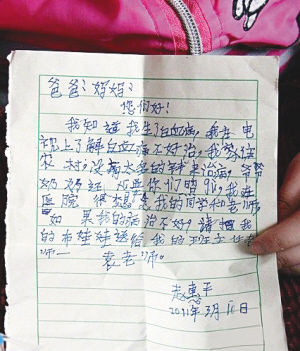 爸爸、妈妈：
您们好！
我知道我生了白血病，我在电
视上了解白血病不好治，我家住
农村，没有太多的钱来治病，爷爷
奶奶
医院 很想念我的同学和老师
如 果我的病治不好，请把我
的布娃娃送给我的班主任老
师——袁老师。
赵惠平
2011年3月10日